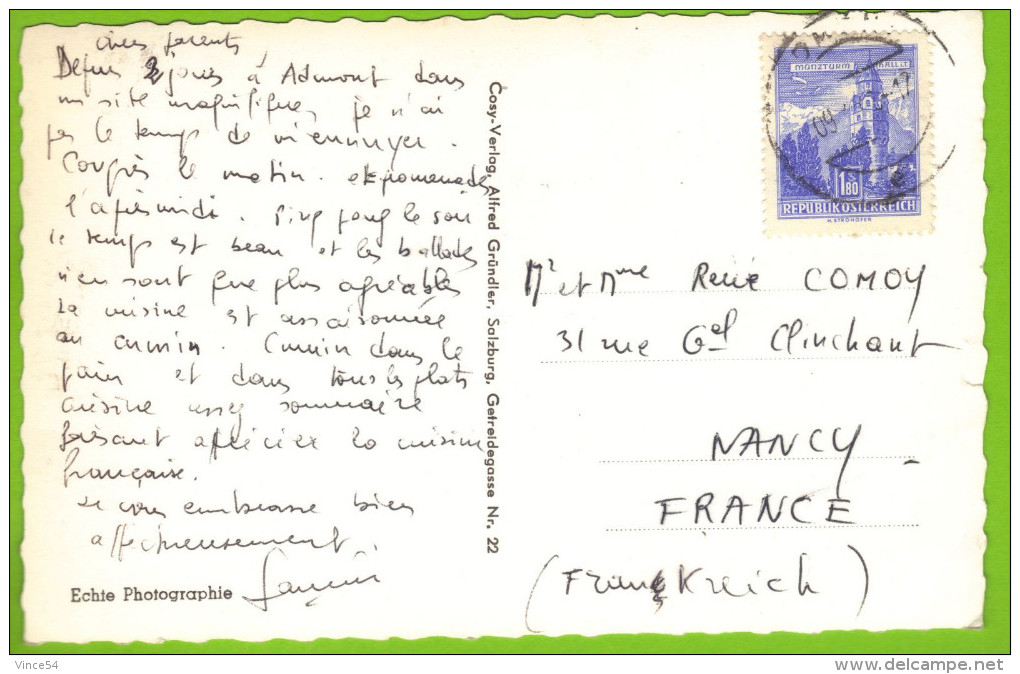 chers parents
Depuis 2 jours à Admont dans
un site magnifique, je n'ai
pas le temps de m'ennuyer.
Congrès le matin. et promenades
l'après midi. Ping pong le soir
le temps est beau et les ballades
n'en sont que plus agréables
La cuisine est assaisonnée
au cumin. Cumin dans le
pain et dans tous les plats
cuisine assez sommaire
faisant apprécier la cuisine
française.
Je vous embrasse bien
affectueusement
Echte Photographie
Cosy-Verlag, Alfred Gründler, Salzburg, Getreidegasse Nr. 22
MÜNZTURM HALL i.T.
1.80
REPUBLIK ÖSTERREICH
H. STROHOFER
Mr et Mme René COMOY
31 rue Gel Clinchant
NANCY
FRANCE
(Frankreich)
Vince54
www.delcampe.net